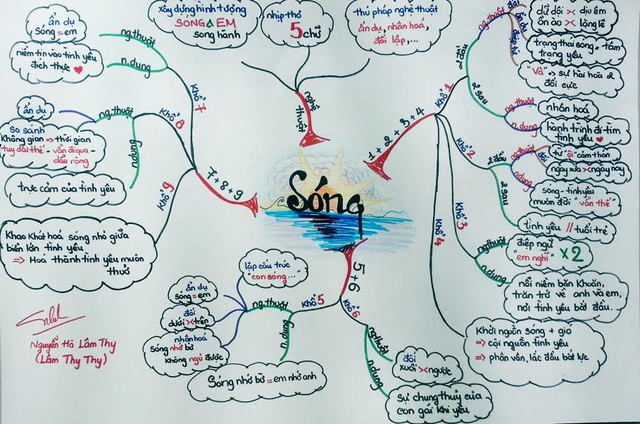 Sóng
nghệ
thuật
xây dựng hình tượng
SÓNG & EM
song hành
nhịp thơ
5 chữ
thủ pháp nghệ thuật
ẩn dụ, nhân hoá,
đối lập,...
1 + 2 + 3 + 4
Khổ 1
2 đầu
ng.thuật
đối
ẩn dụ
dữ dội >< dịu êm
ồn ào >< lặng lẽ
trạng thái sóng = tâm
trạng yêu
"Và" => sự hài hoà 2
đối cực
2 sau
ng.thuật
nhân hoá
n.dung
hành trình đi tìm
tình yêu
Khổ 2
2 đầu
ng.thuật
từ "ôi" cảm thán
ngày xưa >< ngày nay
n.dung
sóng - tình yêu
muôn đời "vẫn thế"
2 sau
tình yêu // tuổi trẻ
Khổ 3
ng.thuật
điệp ngữ
"em nghĩ" x2
n.dung
nỗi niềm băn khoăn,
trăn trở về anh và em,
nơi tình yêu bắt đầu.
Khổ 4
Khởi nguồn sóng + gió
=> cội nguồn tình yêu
=> phân vân, lắc đầu bất lực
5 + 6
Khổ 5
ng.thuật
lặp cấu trúc
"con sóng..."
ẩn dụ
sóng = em
đối
dưới >< trên
nhân hoá
sóng nhớ bờ
không ngủ được
n.dung
Sóng nhớ bờ = em nhớ anh
Khổ 6
ng.thuật
đối
xuôi >< ngược
n.dung
Sự chung thuỷ của
con gái khi yêu
7 + 8 + 9
Khổ 7
ng.thuật
ẩn dụ
sóng = em
n.dung
niềm tin vào tình yêu
đích thực
Khổ 8
ng.thuật
ẩn dụ
So sánh
không gian => thời gian
"tuy dài thế" - vẫn đi qua -
dẫu rộng
n.dung
trực cảm của tình yêu
Khổ 9
Khao khát hoá sóng nhỏ giữa
biển lớn tình yêu
=> Hoá thành tình yêu muôn
thuở
Nguyễn Hà Lâm Thy
(Lâm Thy Thy)